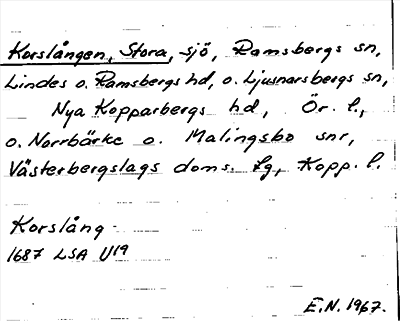 Korslången, Stora, sjö, Ramsbergs sn,
Lindes o. Ramsbergs hd, o. Ljusnarsbergs sn,
Nya Kopparbergs hd, Ör. l.,
o. Norrbärke o. Malingsbo snr,
Västerbergslags doms. tg, Kopp. l.
Korslång -
1687 LSA U19
E.N. 1967.